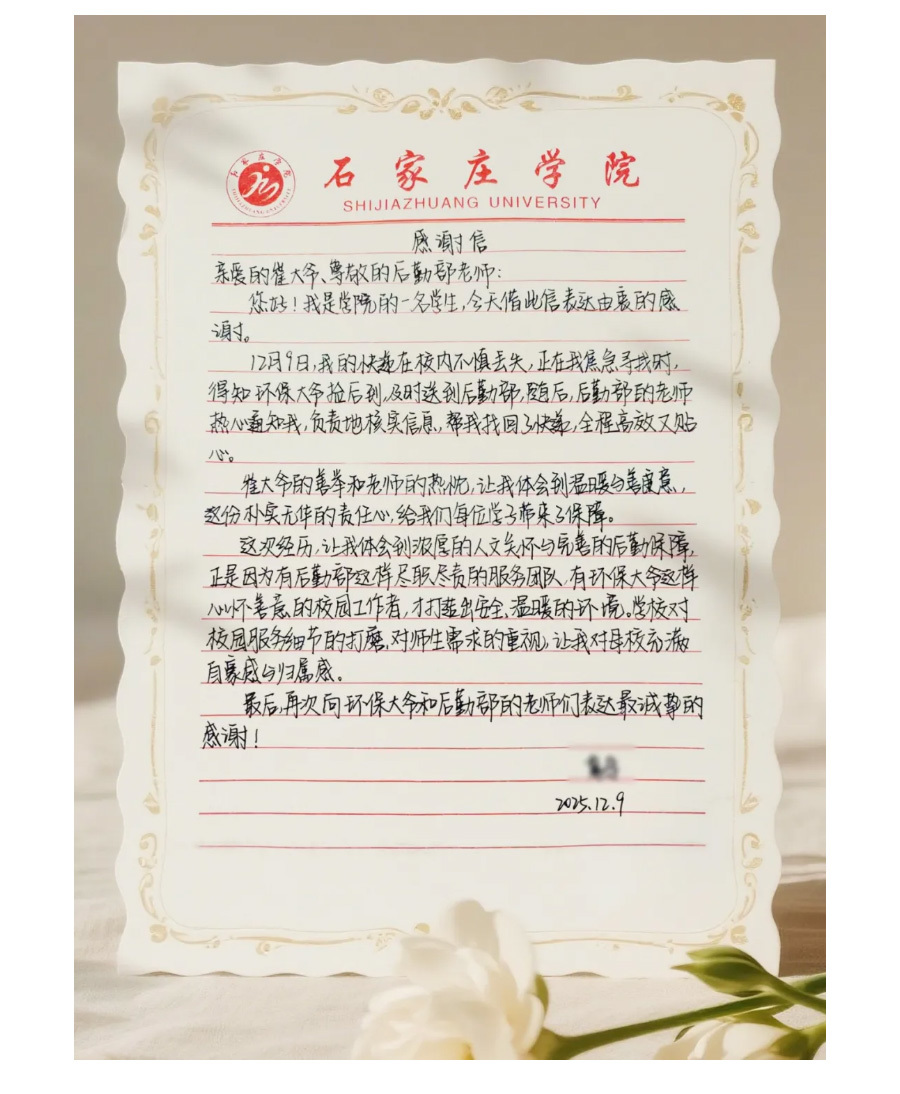 石家庄学院
SHIJIAZHUANG UNIVERSITY
感谢信
亲爱的崔大爷、尊敬的后勤部老师:
您好!我是学院的一名学生,今天借此信表达由衷的感
谢。
12月9日,我的快递在校内不慎丢失,正在我焦急寻找时,
得知环保大爷捡后到,及时送到后勤部,随后,后勤部的老师
热心通知我,负责地核实信息,帮我找回了快递,全程高效又贴
心。
崔大爷的善举和老师的热忱,让我体会到温暖与善意,
这份朴实无华的责任心,给我们每位学子带来了保障。
这次经历,让我体会到浓厚的人文关怀与完善的后勤保障,
正是因为有后勤部这样尽职尽责的服务团队,有环保大爷这样
心怀善意的校园工作者,才打造出安全、温暖的环境。学校对
校园服务细节的打磨,对师生需求的重视,让我对母校充满
自豪感与归属感。
最后,再次向环保大爷和后勤部的老师们表达最诚挚的
感谢!
2025.12.9